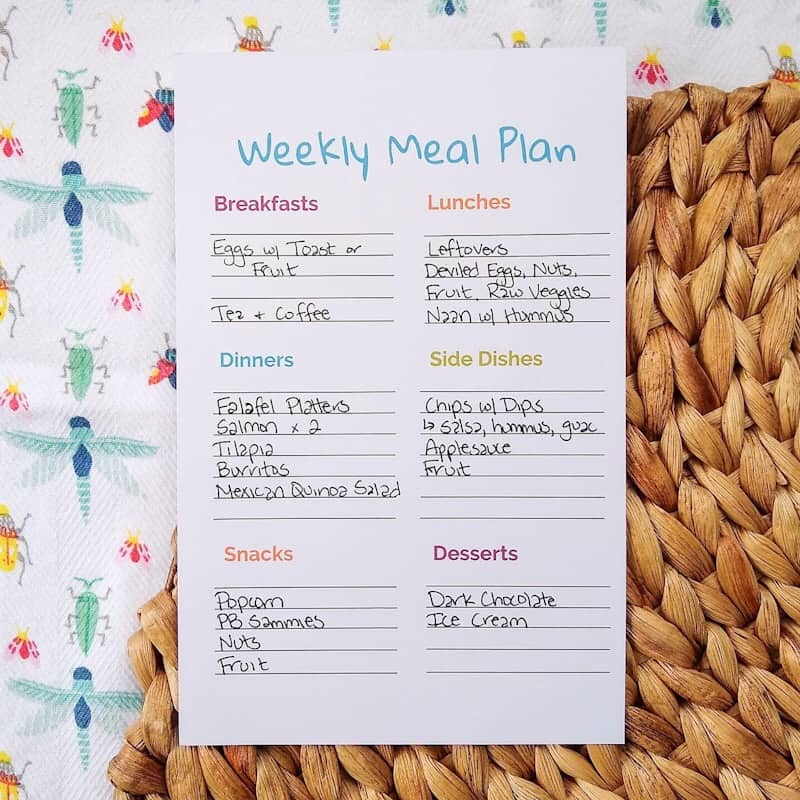 Weekly Meal Plan
Breakfasts
Eggs w/ Toast or
Fruit
Tea + Coffee
Lunches
Leftovers
Deviled Eggs, Nuts,
Fruit, Raw Veggies
Naan w/ Hummus
Dinners
Falafel Platters
Salmon x 2
Tilapia
Burritos
Mexican Quinoa Salad
Side Dishes
Chips w/ Dips
↳ salsa, hummus, guac
Applesauce
Fruit
Snacks
Popcorn
PB Sammies
Nuts
Fruit
Desserts
Dark Chocolate
Ice Cream